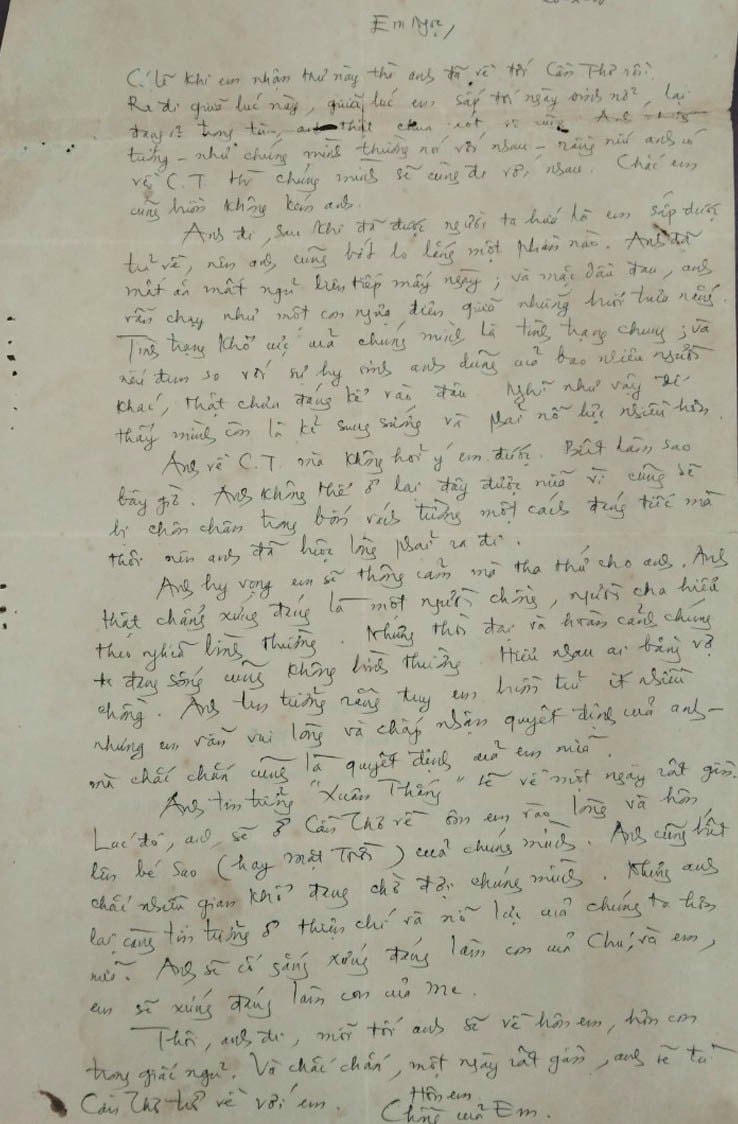 Em Ngọc,
Có lẽ khi em nhận thư này thì anh đã về tới Cần Thơ rồi.
Ra đi giữa lúc này, giữa lúc em sắp tới ngày sinh nở lại
đang ở trong tù, anh thật chua xót vô cùng. Anh
tưởng – như chúng mình thường nói với nhau – rằng nếu anh có
về C.T. thì chúng mình sẽ cùng đi với nhau. Chắc em
cũng buồn không kém anh.
Anh đi, sau khi đã được người ta hứa là em sắp được
trở về, nên anh cũng bớt lo lắng một phần nào. Anh đã
mất ăn mất ngủ liên tiếp mấy ngày; và mặc dầu đau, anh
vẫn chạy như một con ngựa điên giữa những buổi trưa nắng.
Tình trạng khổ cực của chúng mình là tình trạng chung; và
nếu đem so với sự hy sinh anh dũng của bao nhiêu người
khác, thật chưa đáng kể vào đâu. Nghĩ như vậy để
thấy mình còn là kẻ sung sướng và phải nỗ lực nhiều hơn.
Anh về C.T. mà không hỏi ý em được. Biết làm sao
bây giờ. Anh không thể ở lại đây được nữa vì cũng sẽ
bị chôn chân trong bốn vách tường một cách đáng tiếc mà
thôi nên anh đã buộc lòng phải ra đi.
Anh hy vọng em sẽ thông cảm mà tha thứ cho anh. Anh
thật chẳng xứng đáng là một người chồng, người cha hiểu
theo nghĩa bình thường. Nhưng thời đại và hoàn cảnh chúng
ta đang sống cũng không bình thường. Hiểu nhau ai bằng vợ
chồng. Anh tin tưởng rằng tuy em buồn tủi ít nhiều
nhưng em vẫn vui lòng và chấp nhận quyết định của anh –
mà chắc chắn cũng là quyết định của em nữa.
Anh tin tưởng "Xuân Thắng" sẽ về một ngày rất gần.
Lúc đó, anh sẽ ở Cần Thơ về ôm em vào lòng và hôn
lên bé Sao (hay Mặt Trời) của chúng mình. Anh cũng biết
chắc nhiều gian khổ đang chờ đợi chúng mình. Nhưng anh
lại càng tin tưởng ở thiện chí và nỗ lực của chúng ta hơn
nữa. Anh sẽ cố gắng xứng đáng làm con của Chú, và em,
em sẽ xứng đáng làm con của Mẹ.
Thôi, anh đi, mỗi tối anh sẽ về hôn em, hôn con
trong giấc ngủ. Và chắc chắn, một ngày rất gần, anh sẽ từ
Cần Thơ trở về với em.
Hôn em
Chồng của Em.